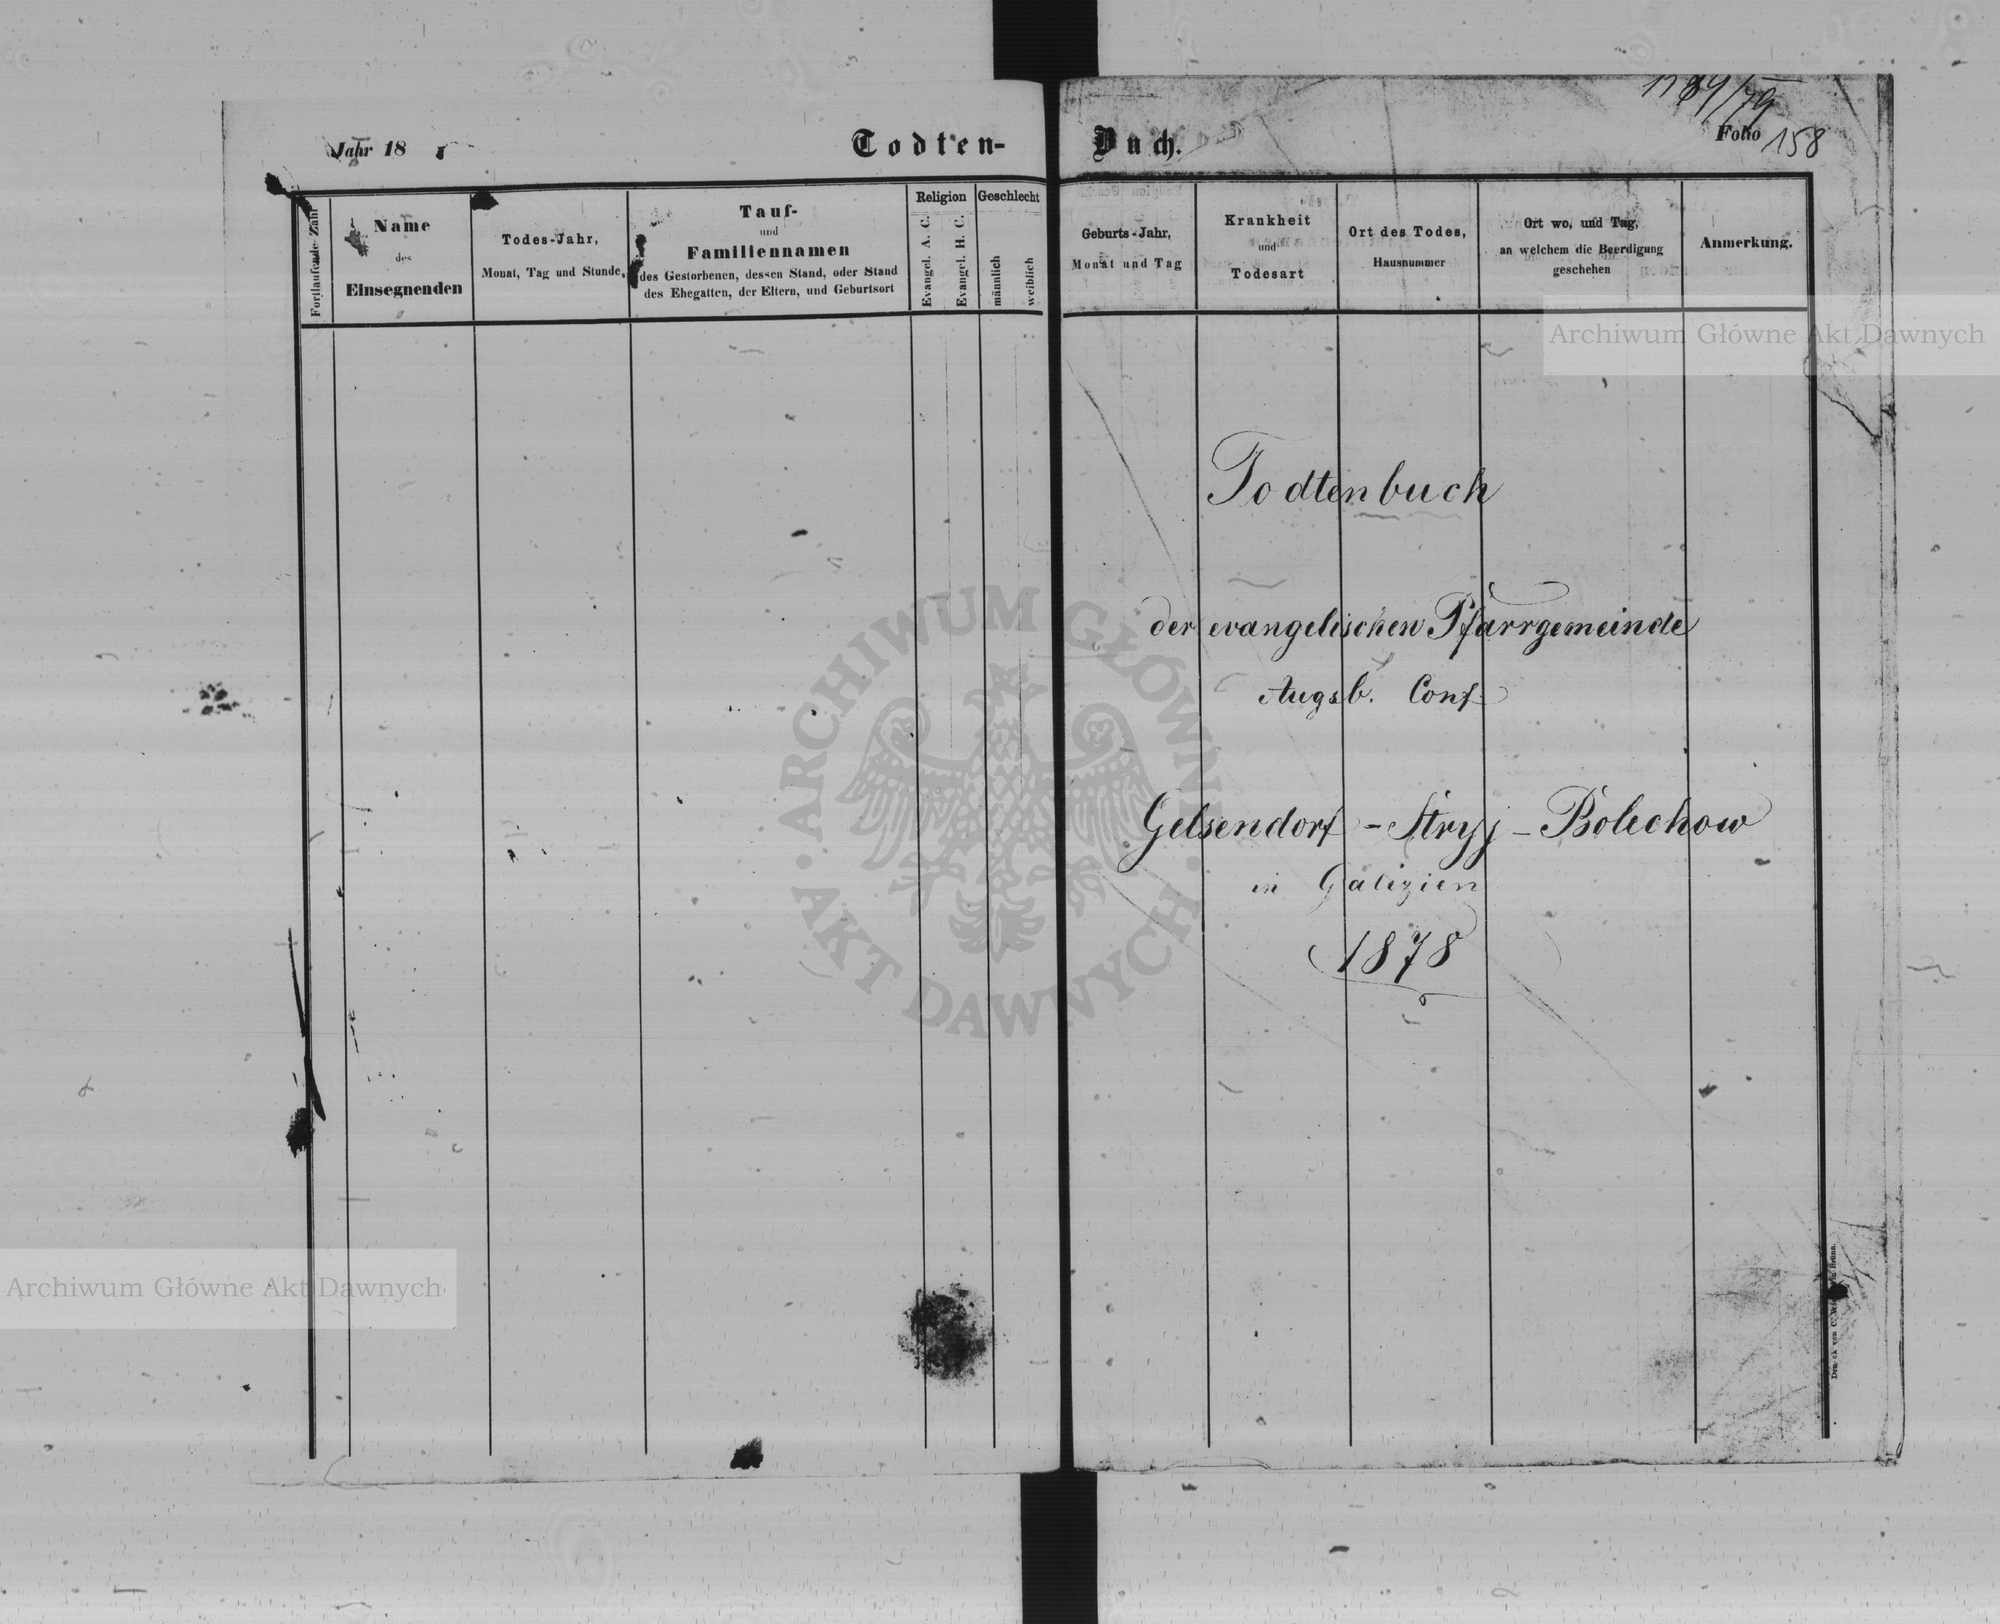 1184/79
Jahr 18
Todten-
Buch.
Folio 158
Fortlaufende Zahl
Name
des
Einsegnenden
Todes-Jahr,
Monat, Tag und Stunde,
Tauf-
und
Familiennamen
des Gestorbenen, dessen Stand, oder Stand
des Ehegatten, der Eltern, und Geburtsort
Religion
Evangel. A. C.
Evangel. H. C.
Geschlecht
männlich
weiblich
Geburts-Jahr,
Monat und Tag
Krankheit
und
Todesart
Ort des Todes,
Hausnummer
Ort wo, und Tag,
an welchem die Beerdigung
geschehen
Anmerkung.
Archiwum Główne Akt Dawnych
Todtenbuch
der evangelischen Pfarrgemeinde
Augsb. Conf
Gelsendorf - Stryj - Bolechow
in Galizien
1878
ARCHIWUM GŁÓWNE · AKT DAWNYCH ·
Archiwum Główne Akt Dawnych
Druck von C.